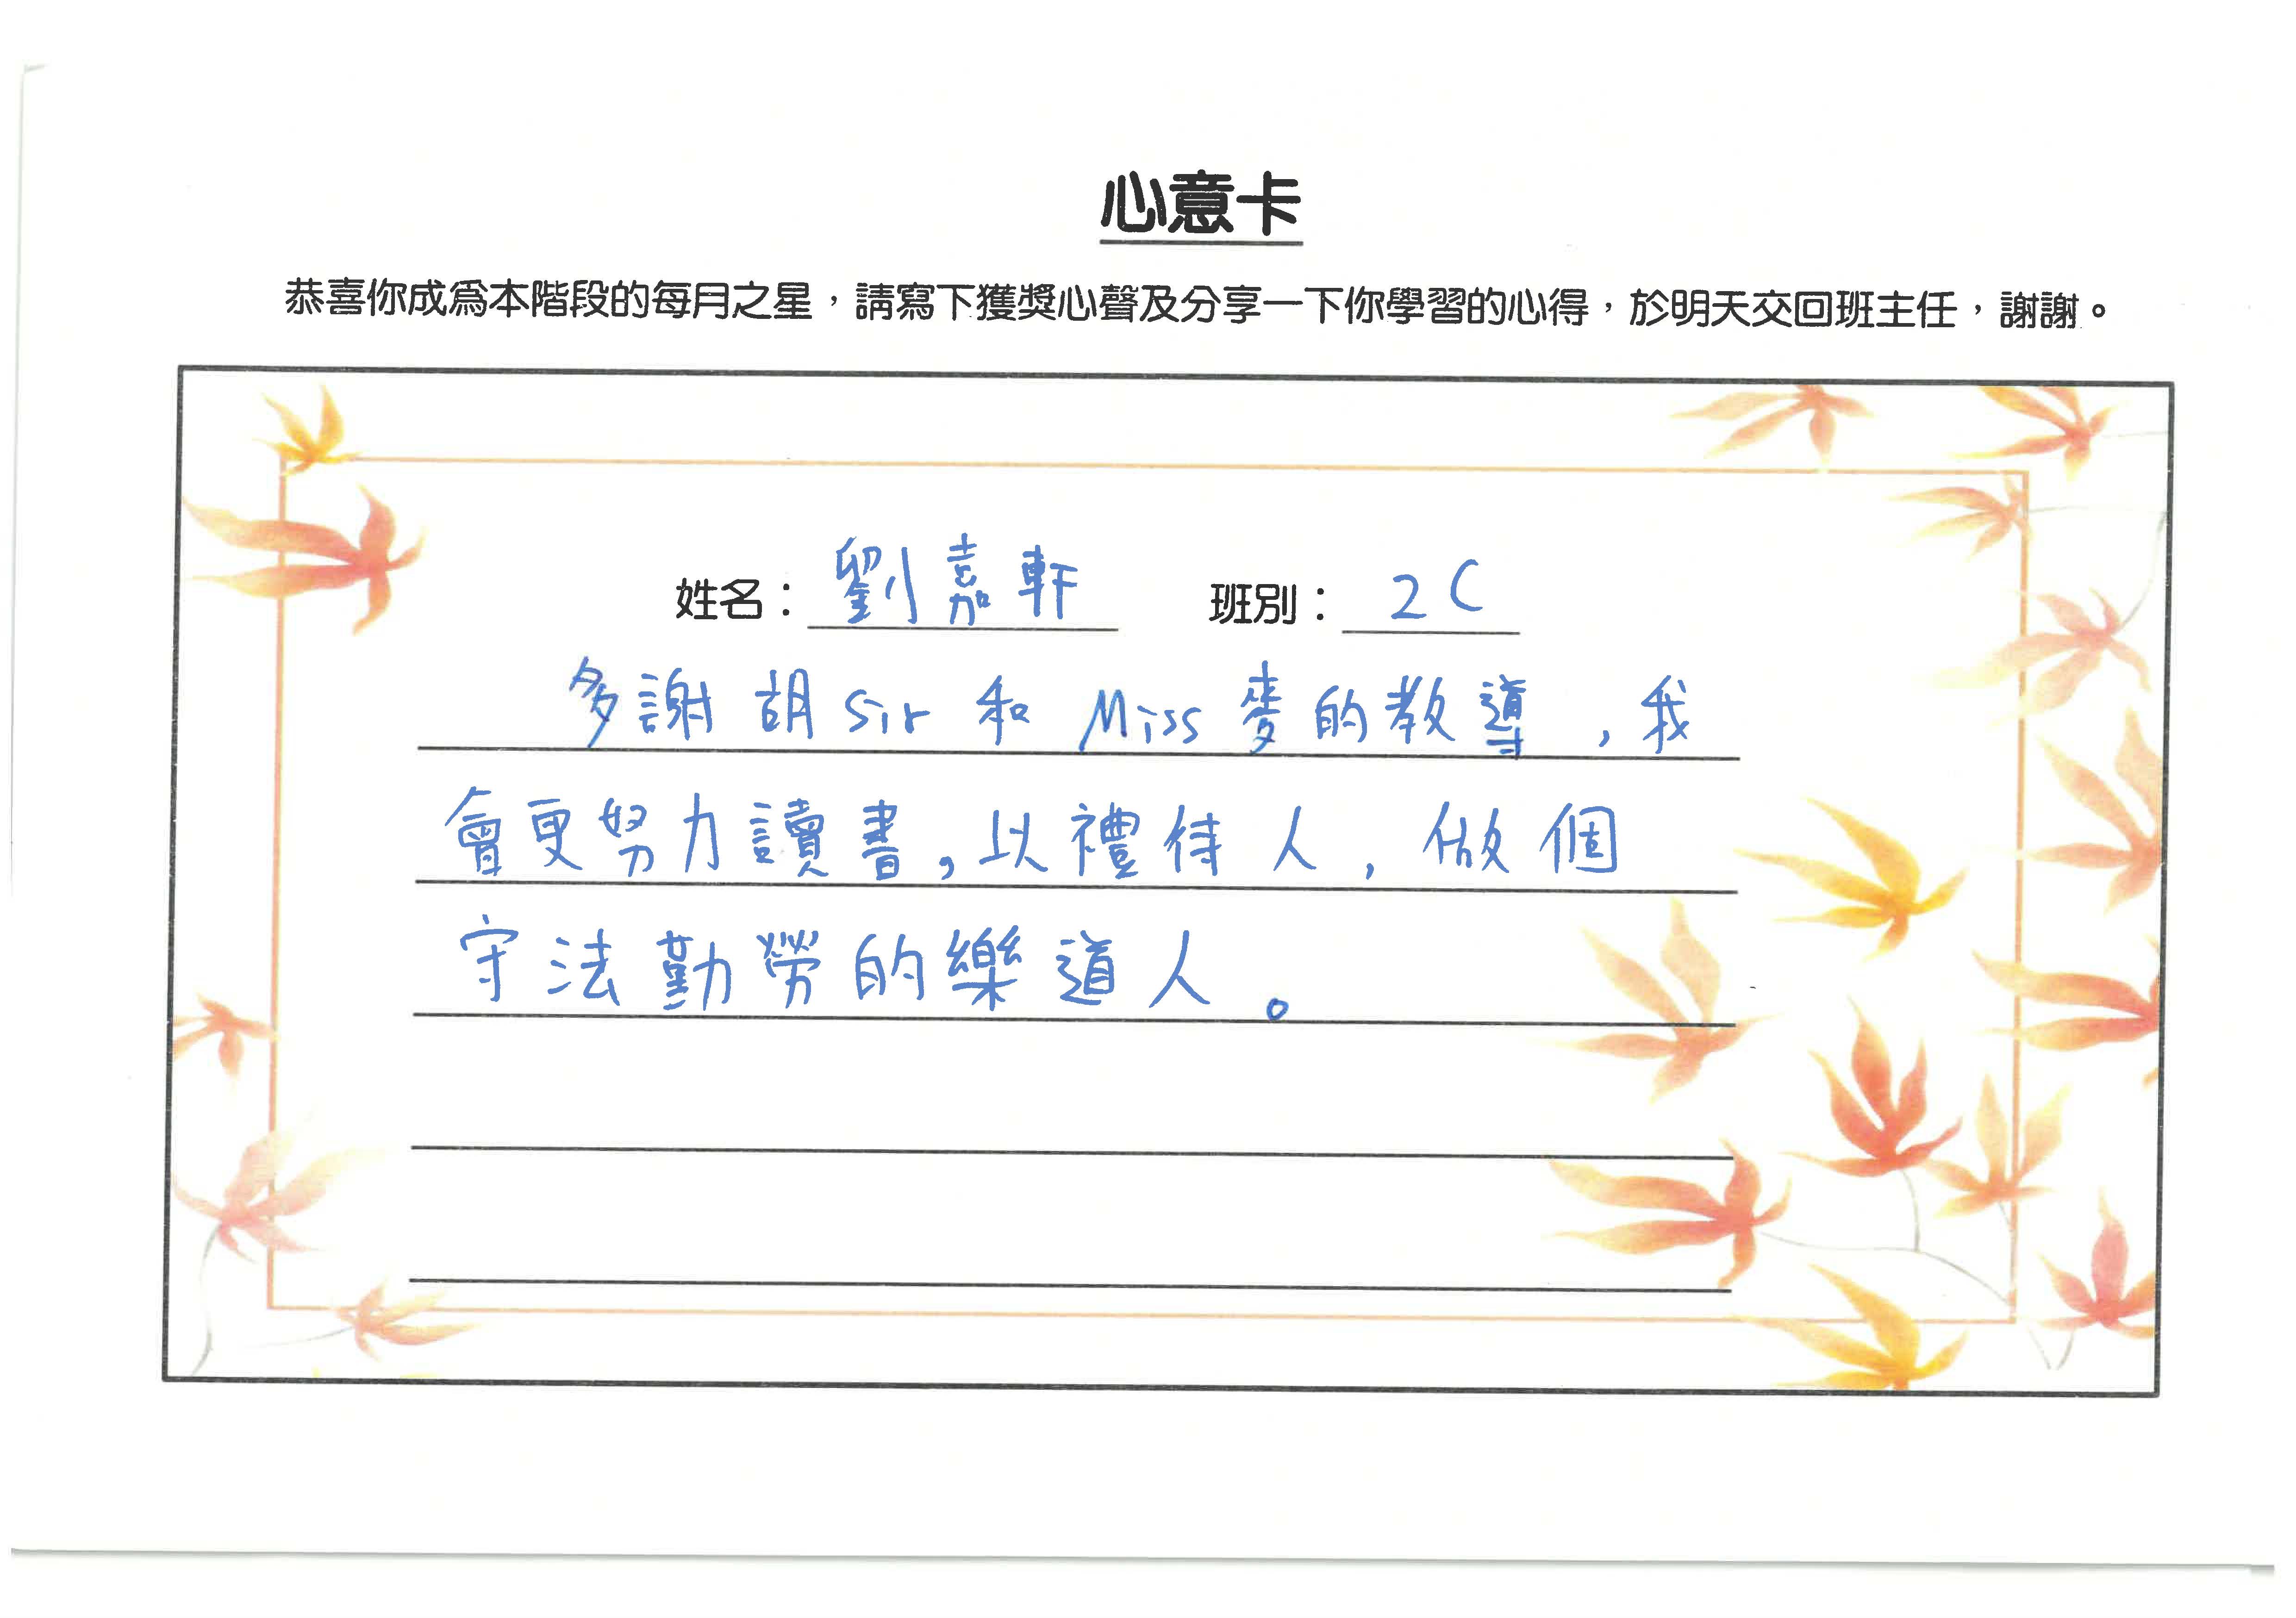 心意卡
恭喜你成為本階段的每月之星，請寫下獲獎心聲及分享一下你學習的心得，於明天交回班主任，謝謝。
姓名：劉嘉軒 班別：2C
多謝胡sir和Miss麥的教導，我
會更努力讀書，以禮待人，做個
守法勤勞的樂道人。